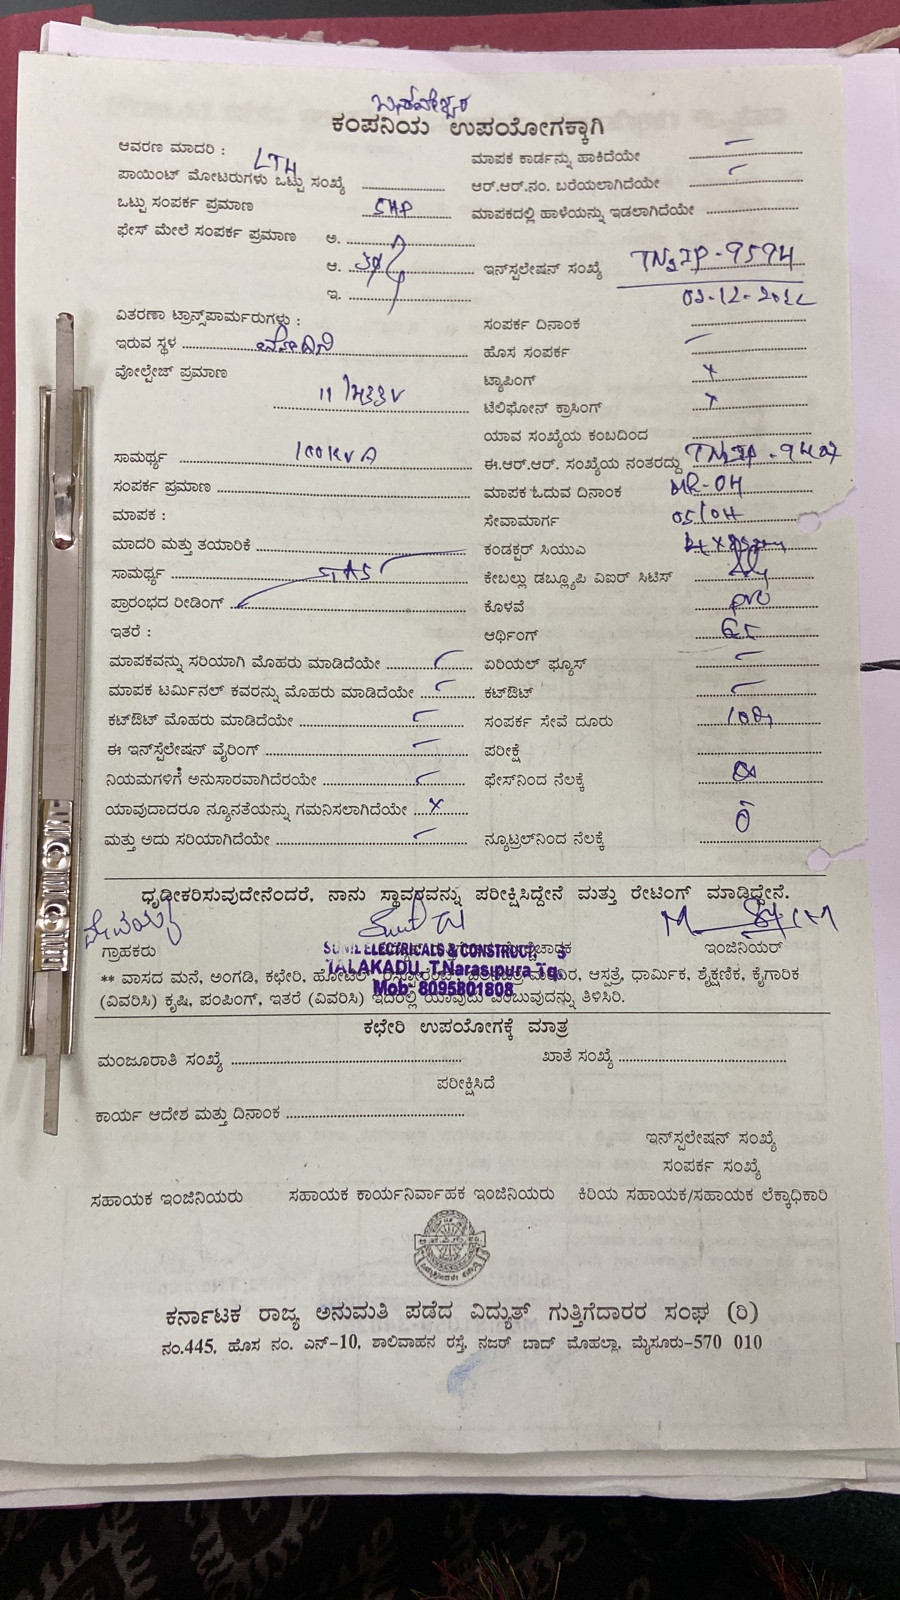 ಬಸವೇಶ್ವರ
ಕಂಪನಿಯ ಉಪಯೋಗಕ್ಕಾಗಿ
ಆವರಣ ಮಾದರಿ :
ಮಾಪಕ ಕಾರ್ಡನ್ನು ಹಾಕಿದೆಯೇ
ಪಾಯಿಂಟ್ ಮೋಟರುಗಳು ಒಟ್ಟು ಸಂಖ್ಯೆ
ಆರ್.ಆರ್.ನಂ. ಬರೆಯಲಾಗಿದೆಯೇ
ಒಟ್ಟು ಸಂಪರ್ಕ ಪ್ರಮಾಣ 5HP
ಮಾಪಕದಲ್ಲಿ ಹಾಳೆಯನ್ನು ಇಡಲಾಗಿದೆಯೇ
ಫೇಸ್ ಮೇಲೆ ಸಂಪರ್ಕ ಪ್ರಮಾಣ ಅ.
ಆ.
ಇನ್‌ಸ್ಟಲೇಷನ್ ಸಂಖ್ಯೆ TN3IP-9594
ಇ.
ವಿತರಣಾ ಟ್ರಾನ್ಸ್‌ಪಾರ್ಮರುಗಳು :
ಸಂಪರ್ಕ ದಿನಾಂಕ
ಇರುವ ಸ್ಥಳ
ಹೊಸ ಸಂಪರ್ಕ
ವೋಲ್ಟೇಜ್ ಪ್ರಮಾಣ
ಟ್ಯಾಪಿಂಗ್ x
ಟೆಲಿಫೋನ್ ಕ್ರಾಸಿಂಗ್ x
ಯಾವ ಸಂಖ್ಯೆಯ ಕಂಬದಿಂದ
ಸಾಮರ್ಥ್ಯ 100KVA
ಈ.ಆರ್.ಆರ್. ಸಂಖ್ಯೆಯ ನಂತರದ್ದು
ಸಂಪರ್ಕ ಪ್ರಮಾಣ
ಮಾಪಕ ಓದುವ ದಿನಾಂಕ MR-04
ಮಾಪಕ :
ಸೇವಾಮಾರ್ಗ 05/04
ಮಾದರಿ ಮತ್ತು ತಯಾರಿಕೆ
ಕಂಡಕ್ಟರ್ ಸಿಯುಎ
ಸಾಮರ್ಥ್ಯ
ಕೇಬಲ್ಲು ಡಬ್ಲ್ಯೂಪಿ ವಿಐರ್ ಸಿಟಿಸ್
ಪ್ರಾರಂಭದ ರೀಡಿಂಗ್
ಕೊಳವೆ
ಇತರೆ :
ಆರ್ಥಿಂಗ್
ಮಾಪಕವನ್ನು ಸರಿಯಾಗಿ ಮೊಹರು ಮಾಡಿದೆಯೇ
ಏರಿಯಲ್ ಫ್ಯೂಸ್
ಮಾಪಕ ಟರ್ಮಿನಲ್ ಕವರನ್ನು ಮೊಹರು ಮಾಡಿದೆಯೇ
ಕಟ್ಔಟ್
ಕಟ್ಔಟ್ ಮೊಹರು ಮಾಡಿದೆಯೇ
ಸಂಪರ್ಕ ಸೇವೆ ದೂರು
ಈ ಇನ್‌ಸ್ಟೆಲೇಷನ್ ವೈರಿಂಗ್
ಪರೀಕ್ಷೆ
ನಿಯಮಗಳಿಗೆ ಅನುಸಾರವಾಗಿದೆರಯೇ
ಫೇಸ್‌ನಿಂದ ನೆಲಕ್ಕೆ
ಯಾವುದಾದರೂ ನ್ಯೂನತೆಯನ್ನು ಗಮನಿಸಲಾಗಿದೆಯೇ x
ಮತ್ತು ಅದು ಸರಿಯಾಗಿದೆಯೇ
ನ್ಯೂಟ್ರಲ್‌ನಿಂದ ನೆಲಕ್ಕೆ
ಧೃಡೀಕರಿಸುವುದೇನೆಂದರೆ, ನಾನು ಸ್ಥಾವರವನ್ನು ಪರೀಕ್ಷಿಸಿದ್ದೇನೆ ಮತ್ತು ರೇಟಿಂಗ್ ಮಾಡಿದ್ದೇನೆ.
ಗ್ರಾಹಕರು
ಇಂಜಿನಿಯರ್
SUNIL ELECTRICALS & CONSTRUCT
TALAKADU, T.Narasipura Tq.
Mob: 8095801808
** ವಾಸದ ಮನೆ, ಅಂಗಡಿ, ಕಛೇರಿ, ಹೋಟೆಲ್ ಆಸ್ಪತ್ರೆ, ಧಾರ್ಮಿಕ, ಶೈಕ್ಷಣಿಕ, ಕೈಗಾರಿಕ
(ವಿವರಿಸಿ) ಕೃಷಿ, ಪಂಪಿಂಗ್, ಇತರೆ (ವಿವರಿಸಿ) ಇದರಲ್ಲಿ ಯಾವುದು ಎಂಬುವುದನ್ನು ತಿಳಿಸಿರಿ.
ಕಛೇರಿ ಉಪಯೋಗಕ್ಕೆ ಮಾತ್ರ
ಮಂಜೂರಾತಿ ಸಂಖ್ಯೆ ಖಾತೆ ಸಂಖ್ಯೆ
ಪರೀಕ್ಷಿಸಿದೆ
ಕಾರ್ಯ ಆದೇಶ ಮತ್ತು ದಿನಾಂಕ
ಇನ್‌ಸ್ಟಲೇಷನ್ ಸಂಖ್ಯೆ
ಸಂಪರ್ಕ ಸಂಖ್ಯೆ
ಸಹಾಯಕ ಇಂಜಿನಿಯರು ಸಹಾಯಕ ಕಾರ್ಯನಿರ್ವಾಹಕ ಇಂಜಿನಿಯರು ಕಿರಿಯ ಸಹಾಯಕ/ಸಹಾಯಕ ಲೆಕ್ಕಾಧಿಕಾರಿ
ಕರ್ನಾಟಕ ರಾಜ್ಯ ಅನುಮತಿ ಪಡೆದ ವಿದ್ಯುತ್ ಗುತ್ತಿಗೆದಾರರ ಸಂಘ (ರಿ)
ನಂ.445, ಹೊಸ ನಂ. ಎನ್-10, ಶಾಲಿವಾಹನ ರಸ್ತೆ, ನಜರ್ ಬಾದ್ ಮೊಹಲ್ಲಾ, ಮೈಸೂರು-570 010